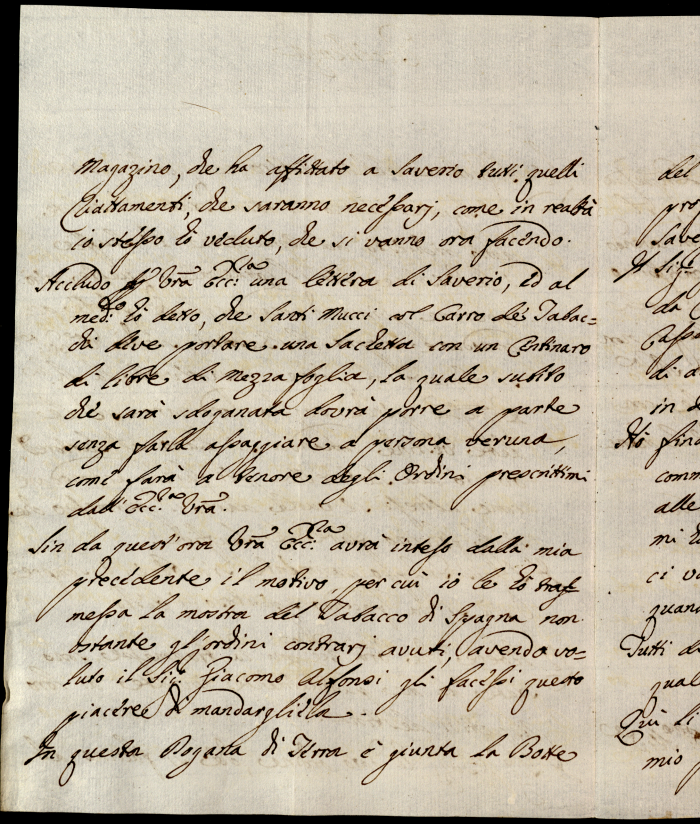 Magazino, che ha affittato a Saverio tutti quelli
Riattamenti, che saranno necessarj, come in realtà
io stesso hò veduto, che si vanno ora facendo.
Acchiudo Vrã Ecc:za una lettera di Saverio, ed al
med:mo hò detto, che Santi Mucci col Carro de' Tabac=
chi deve portare una Sachetta con un Centinaro
di libre di mezza foglia, la quale subito
che sarà sdoganata dovrà porre a parte
senza farla assaggiare a persona veruna,
come farà a tenore degli Ordini prescrittimi
dall'Ecc:za Vrã.
Sin da quest'ora Vrã Ecc:za avrà inteso dalla mia
precedente il motivo, per cui io le hò tras=
messa la mostra del Tabacco di Spagna non
ostante gl'ordini contrarj avuti, avendo vo=
luto il Sig:r Giacomo Alfonsi gli facessi questo
piacere di mandargliela.
In questa Dogana di Terra è giunta la Botte
del
pro
Save
Il Sig:r
da
Cassa
di a
in
Hò fino
comm
alle
mi
ci v
quan
Tutti d
qual
Qui li
mio